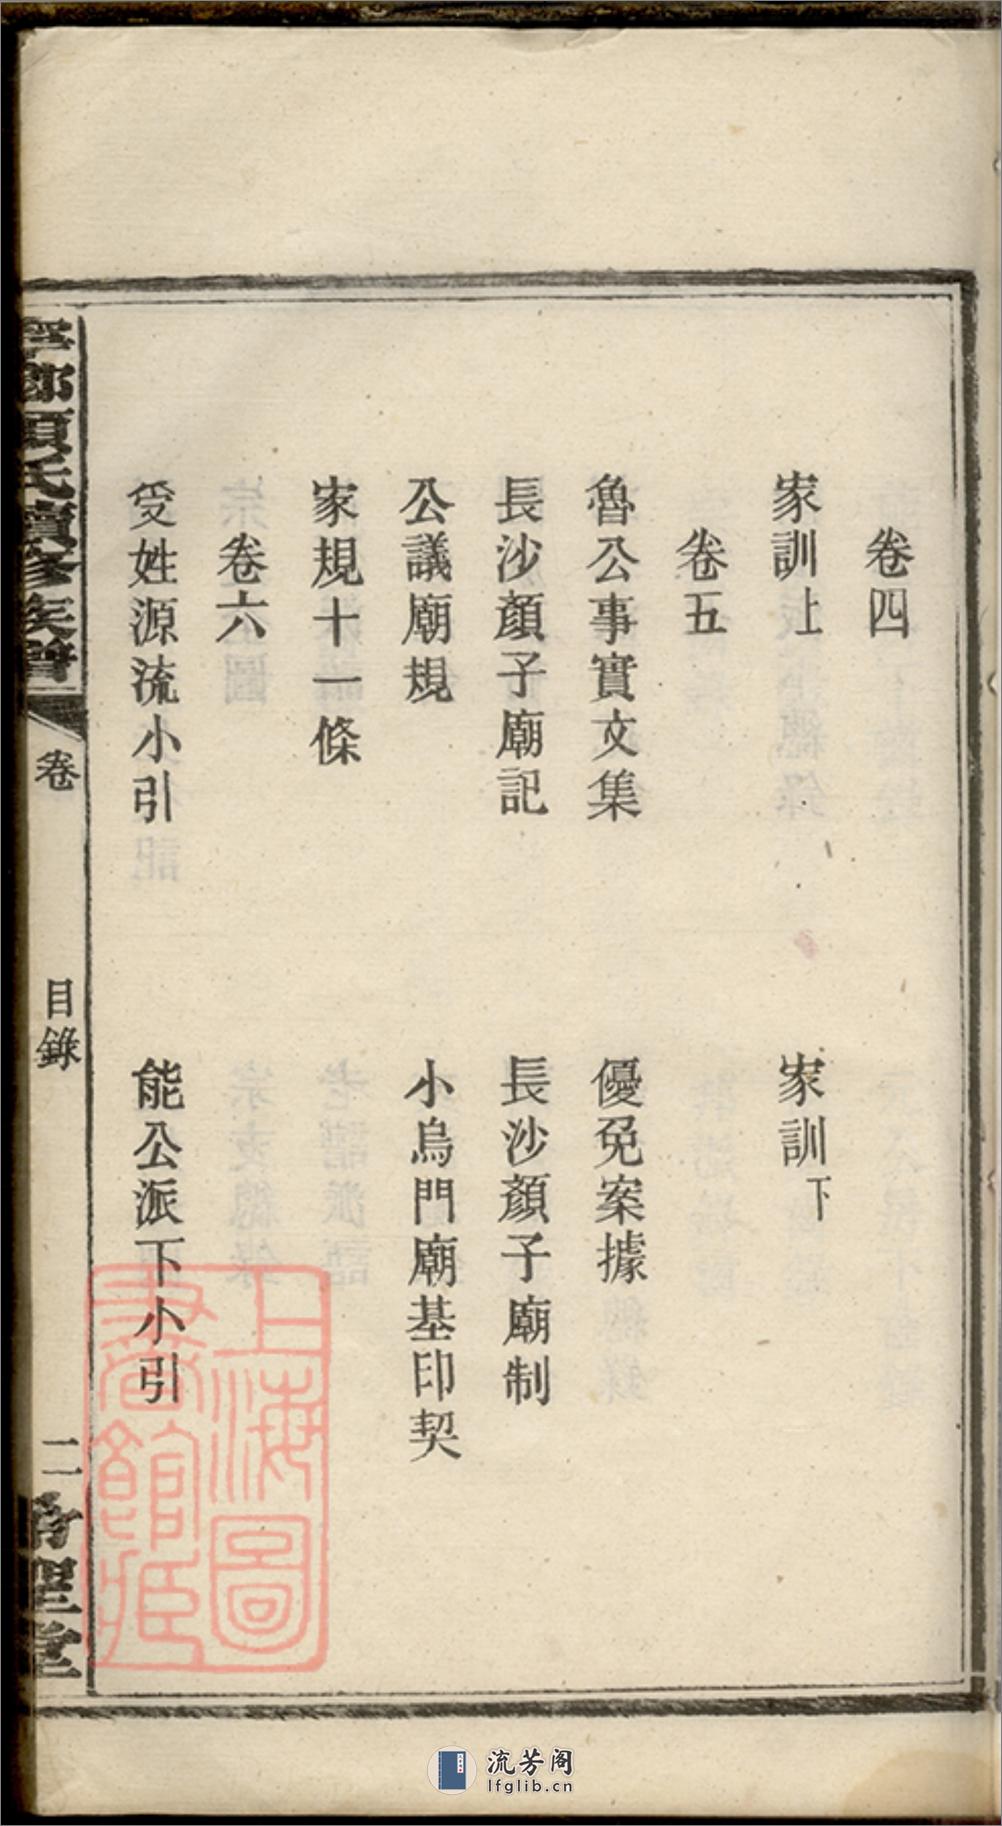 卷四
家訓上 家訓下
卷五
魯公事實文集 優免案據
長沙顏子廟記 長沙顏子廟制
公議廟規 小烏門廟基印契
家規十一條
卷六
受姓源流小引 能公派下小引
寧鄉顏氏續修族譜 卷 目錄 二 堂
上海圖書館藏
流芳阁
lfglib.cn